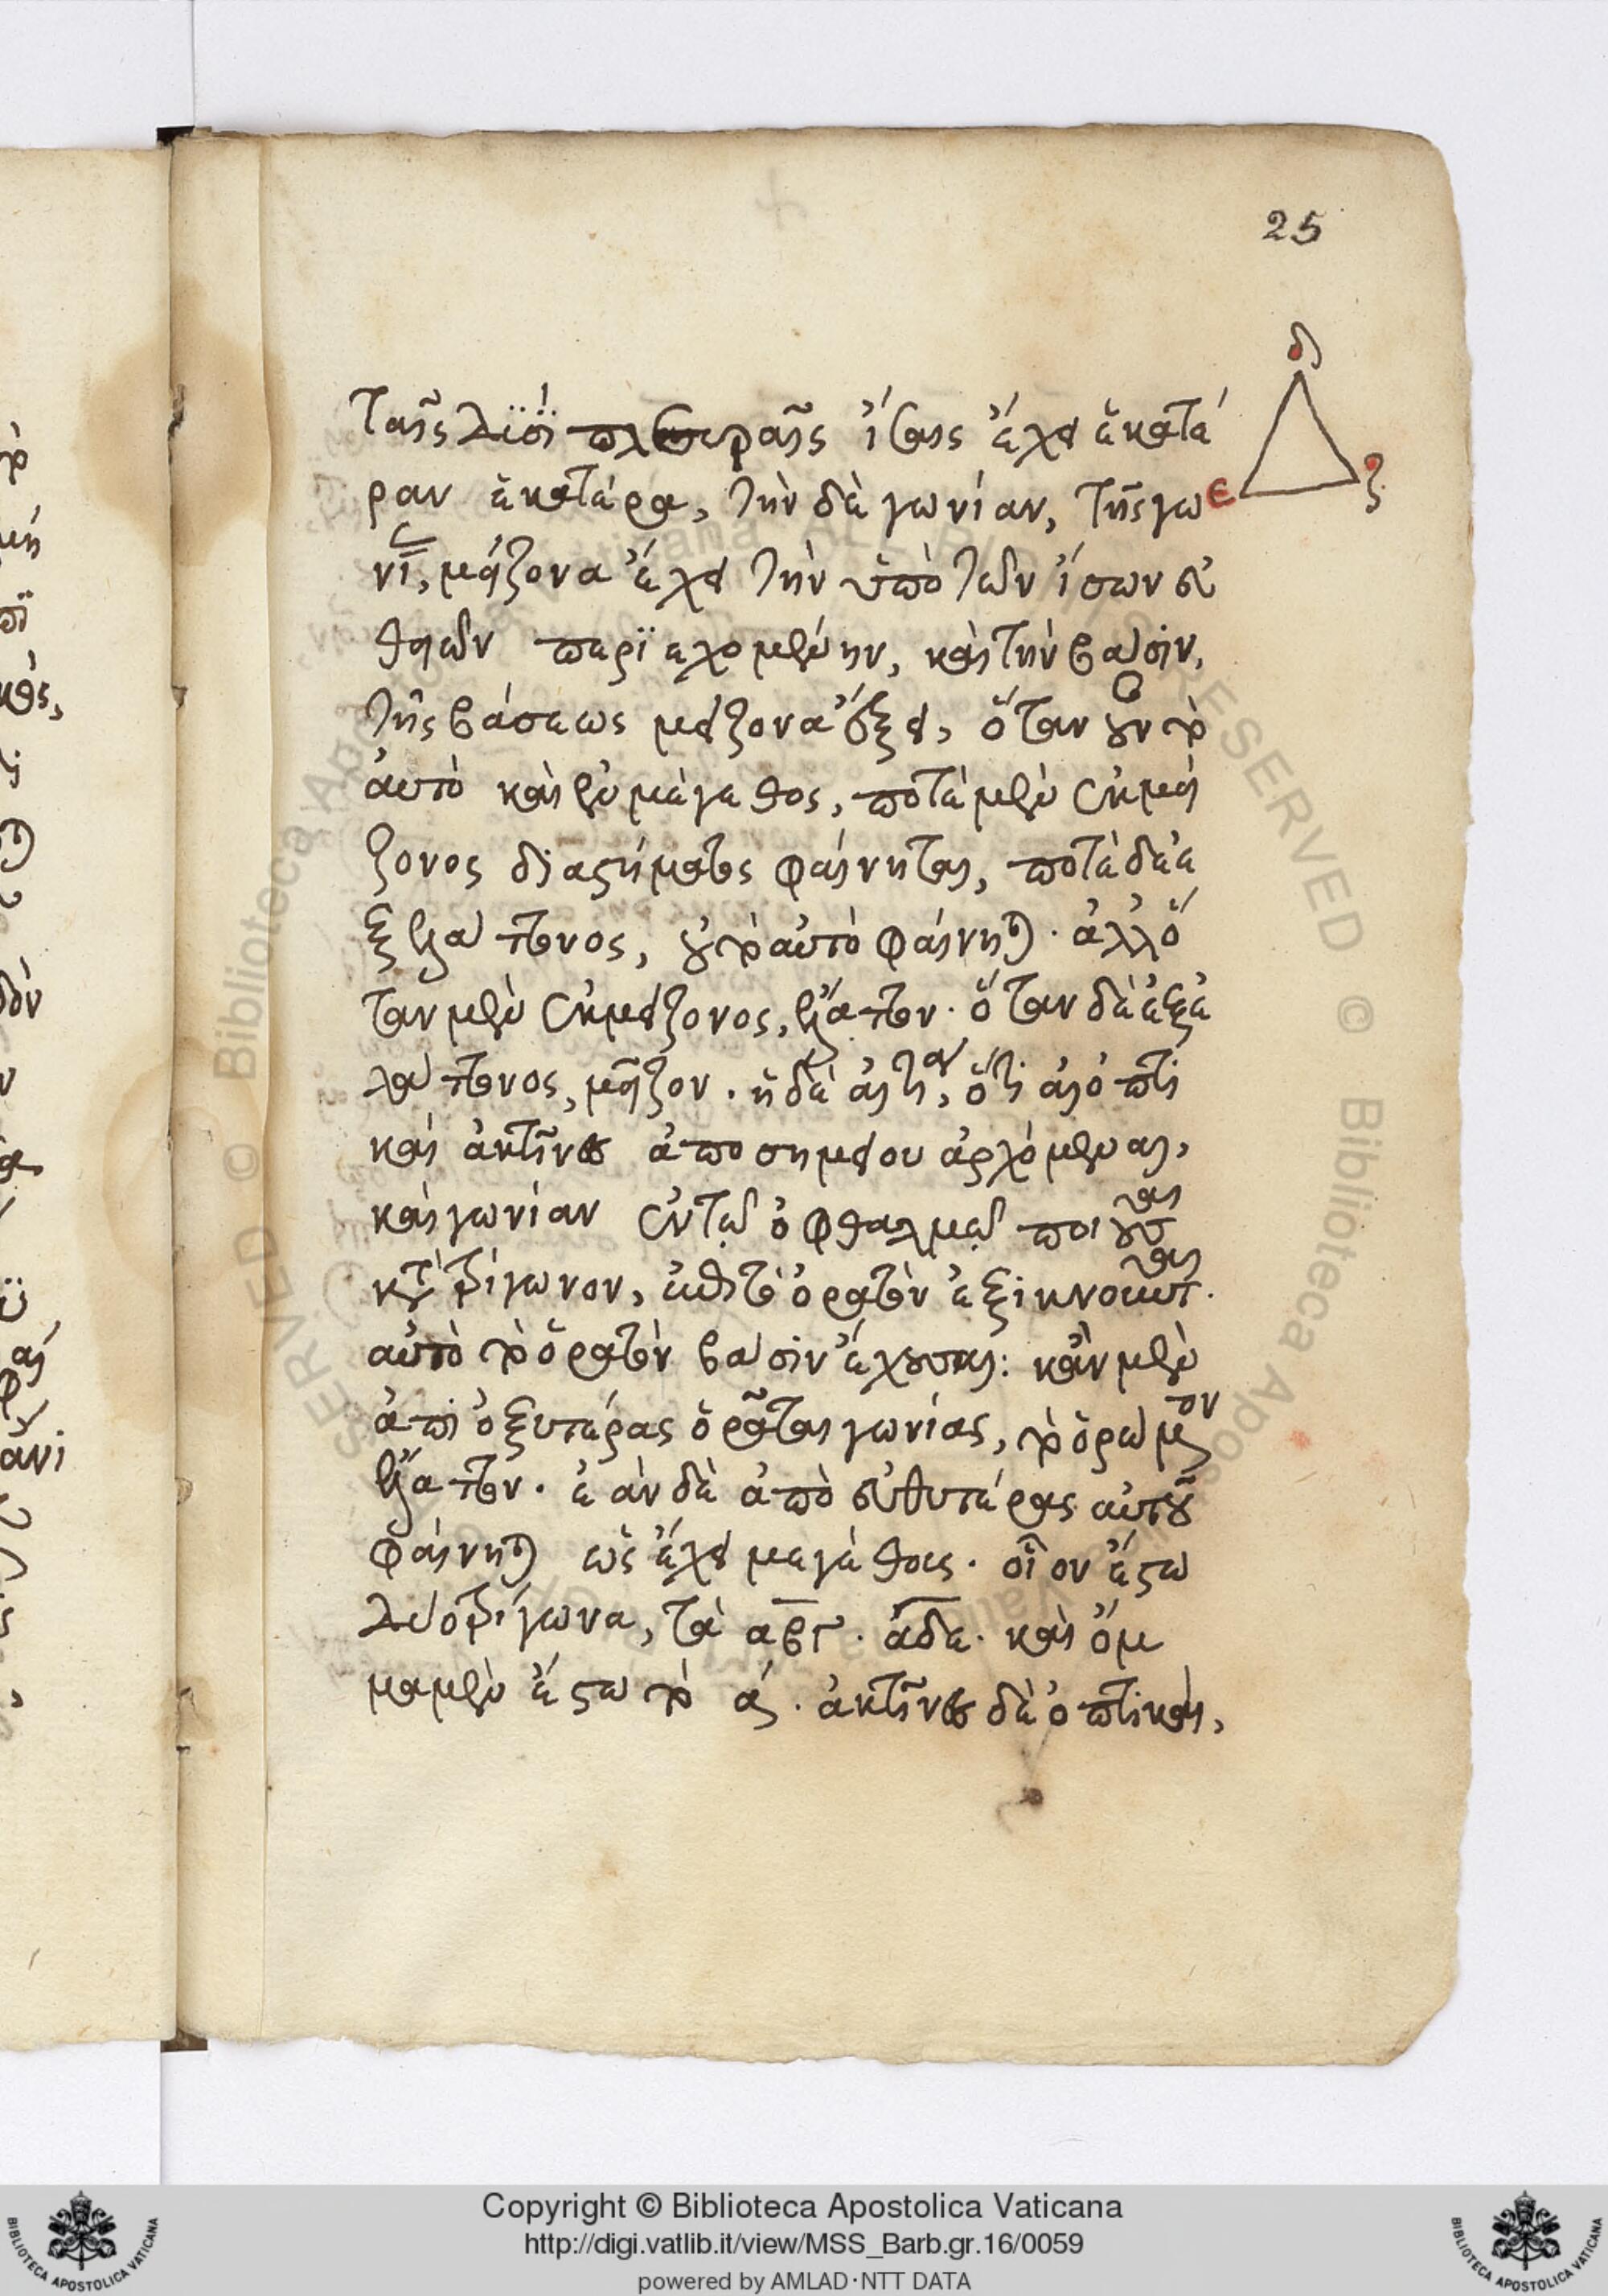 25
δ
ταῖς δυσὶ πλευραῖς ἴσας ἔχει ἑκατέ
ραν ἑκατέρα, τὴν δὲ γωνίαν, τῆς γω
ε
ζ
νί, μείζονα ἔχει τὴν ὑπὸ τῶν ἴσων εὐ
θειῶν περϊεχομένην, καὶ τὴν βάσιν,
τῆς βάσεως μείζονα ἕξει, ὅταν οὖν τὸ
αὐτὸ καὶ ἓν μέγεθος, ποτὲ μὲν ἐκ μεί
ζονος διαστήματος φαίνηται, ποτὲ δὲ ἐ
ξ ἐλάττονος, οὐ τὸ αὐτὸ φαίνηται. ἀλλ' ὅ
ταν μὲν ἐκ μείζονος, ἔλαττον. ὅταν δὲ ἐξ ἐ
λάττονος, μεῖζον. ἡ δὲ αἰτία, ὅτι αἱ ὀπτι
καὶ ἀκτῖνες ἀπο σημείου ἀρχόμεναι,
καὶ γωνίαν ἐν τῷ ὀφθαλμῷ ποιοῦσαι
κατὰ τρίγωνον, ἐπὶ τὸ ὁρατὸν ἐξικνοῦνται.
αὐτὸ τὸ ὁρατὸν βάσιν ἔχουσαι: κἂν μὲν
ἀπὸ ὀξυτέρας ὁρᾶται γωνίας, τὸ ὁρώμενον
ἔλαττον. ἐὰν δὲ ἀπὸ εὐθυτέρας αὐτοῦ
φαίνηται ὡς ἔχει μεγέθους. οἷον ἔστω
δύο τρίγωνα, τὰ αβγ. αδε. καὶ ὄμ
μα μὲν ἔστω τὸ α. ἀκτῖνες δὲ ὀπτικαὶ,
Copyright © Biblioteca Apostolica Vaticana
http://digi.vatlib.it/view/MSS_Barb.gr.16/0059
powered by AMLAD·NTT DATA